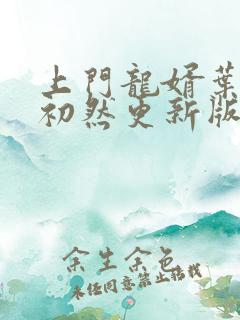 上門龍婿葉
初然更新版
余生余色
未经同意禁止搭载